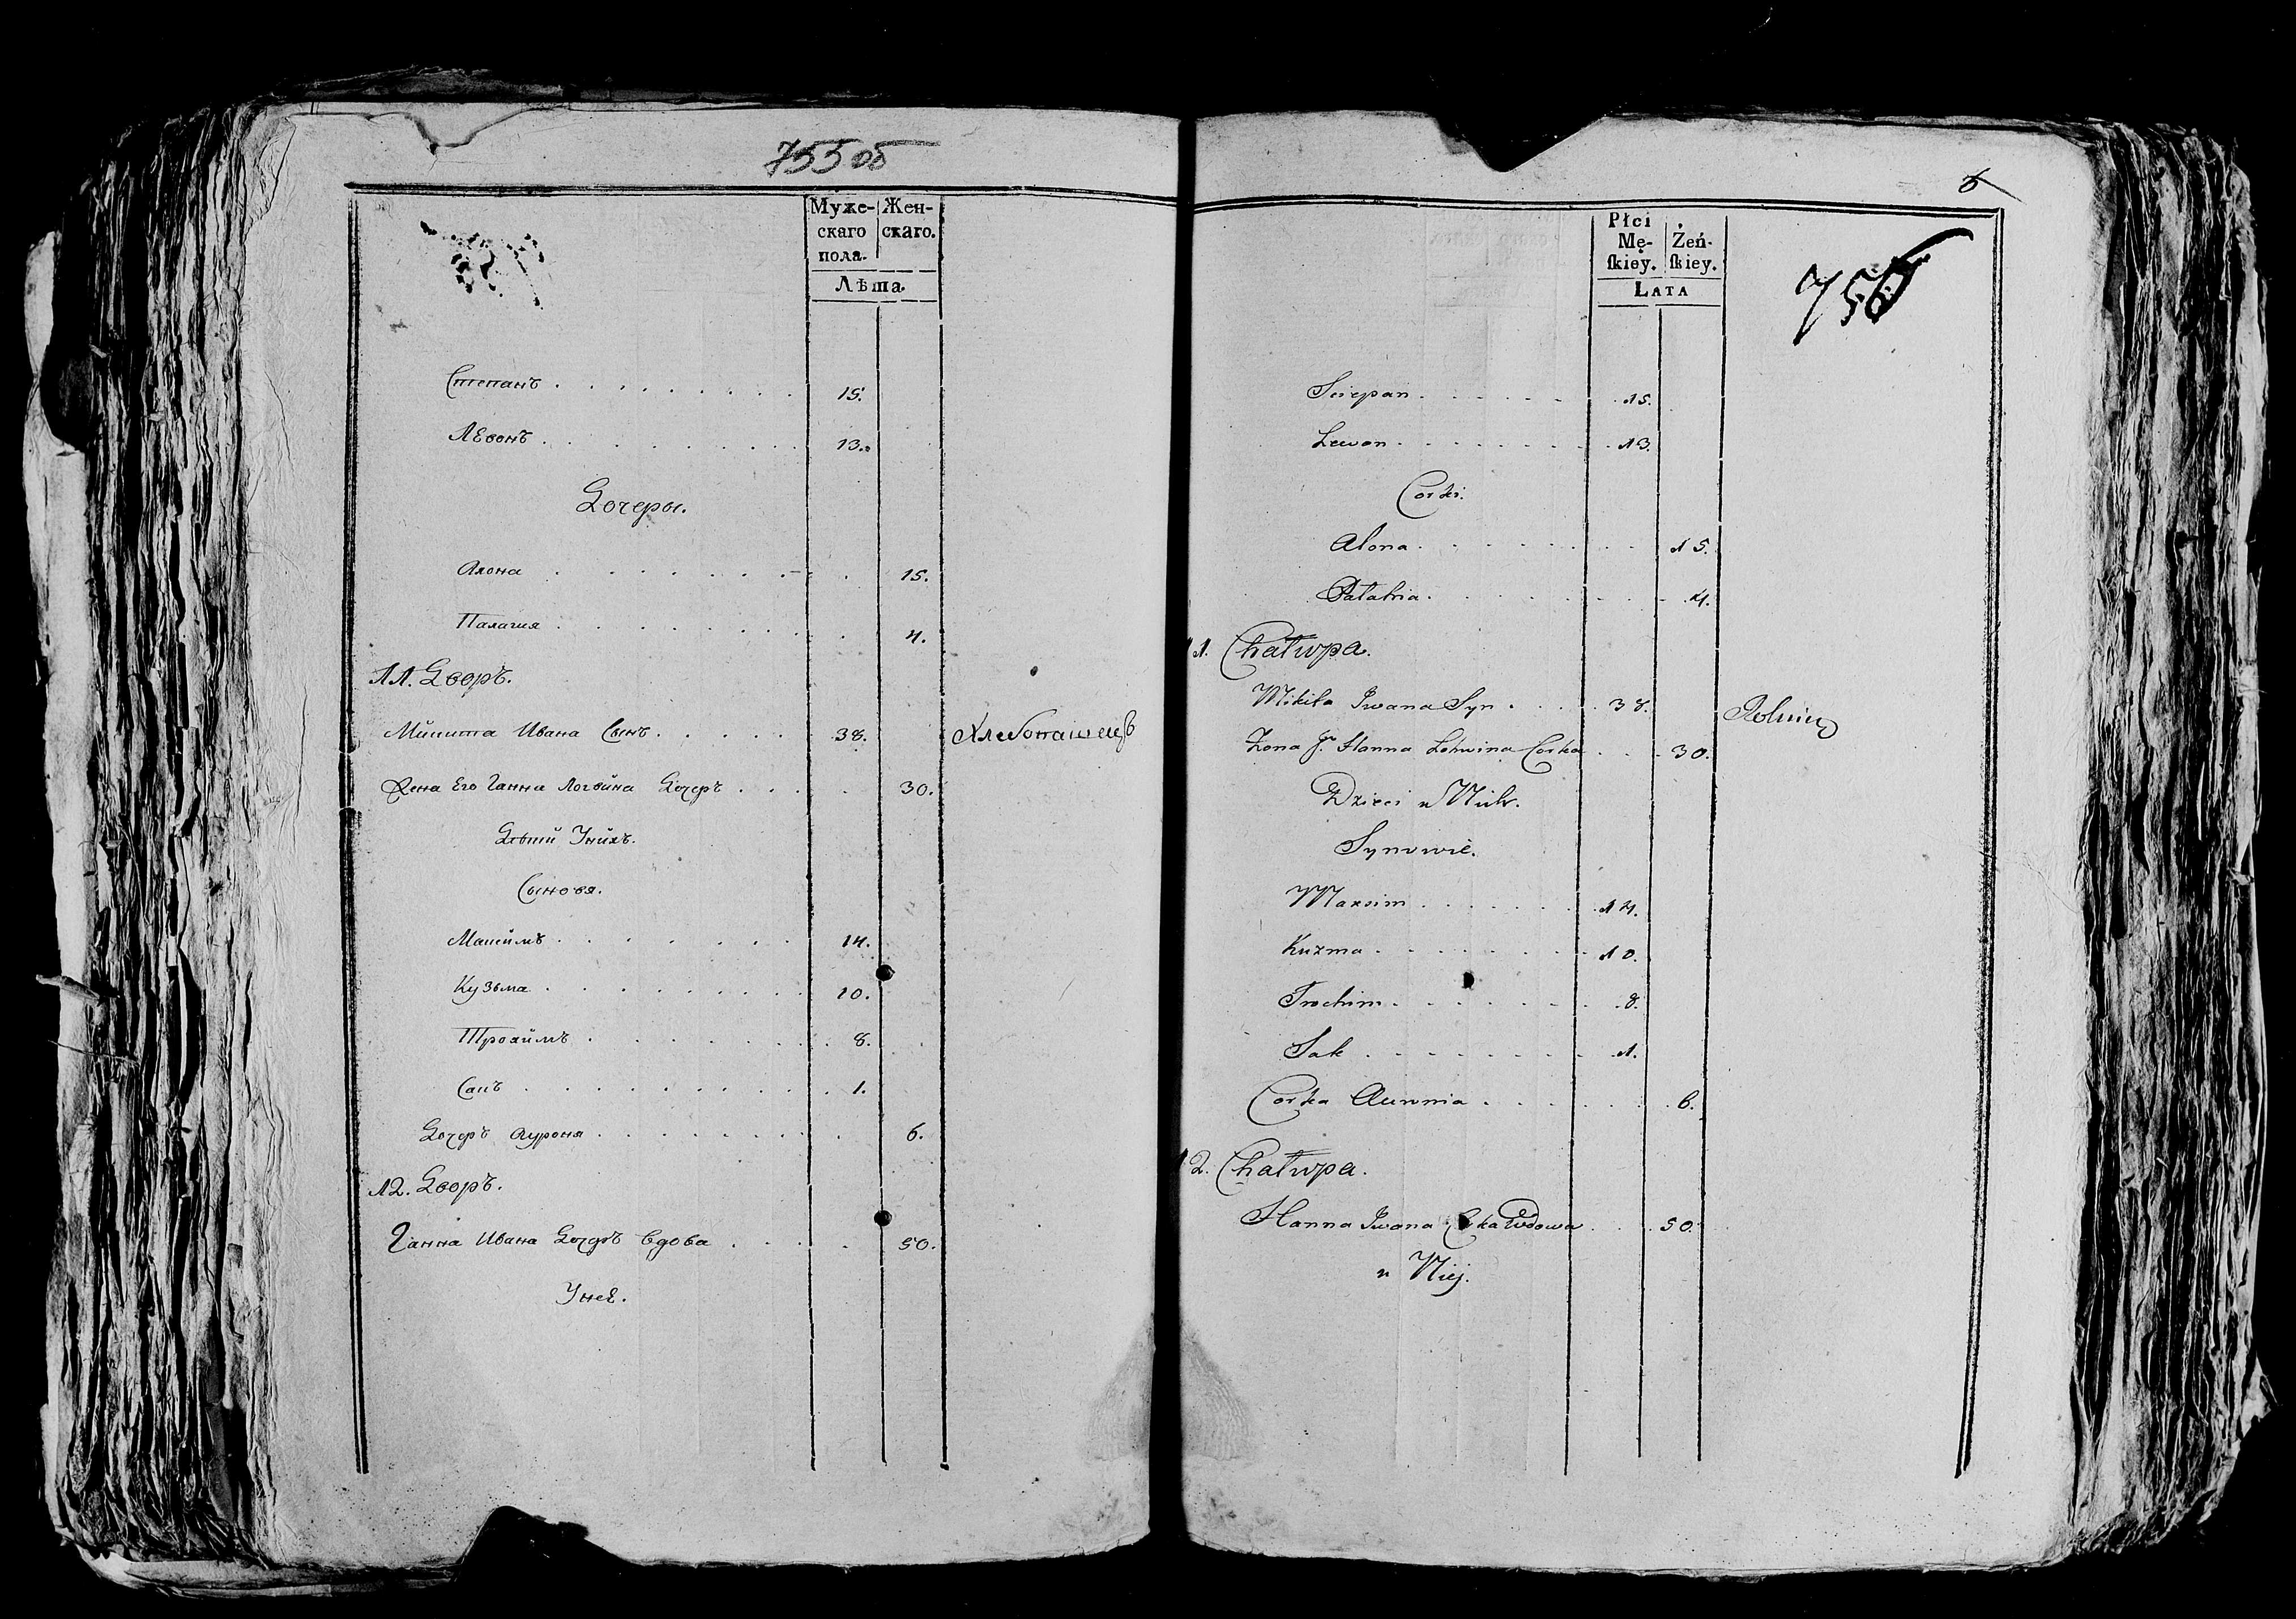 755 об
Муже- Жен-
скаго скаго.
пола.
Лѣта
Степанъ 15.
Левонъ 13.
Дочеры.
Алона 15.
Палагия 4.
11. Дворъ.
Микита Ивана Сынъ 38. Хлебопашецъ
Жена Его Ганна Логвина Дочеръ 30.
Дѣти Унихъ.
Сыновя.
Максимъ 14.
Кузьма 10.
Трохимъ 8.
Сакъ 1.
Дочеръ 6.
12. Дворъ.
Ганна Ивана Дочеръ вдова 50.
Унее.
6
756
Płci
Mę- Żeń-
ſkiey. ſkiey.
LATA
Sciepan 15.
Lewon 13.
Corki.
Alona 15.
Palahia 4.
11. Chałupa.
Mikita Iwana Syn 38. Rolnicy
Zona J. Hanna Lohwina Corka 30.
Dzieci u Nich.
Synowie.
Maxsim 14.
Kuzma 10.
Trochim 8.
Sak 1.
Corka 6.
12. Chałupa.
Hanna Iwana Corka Wdowa 50.
u Niej.